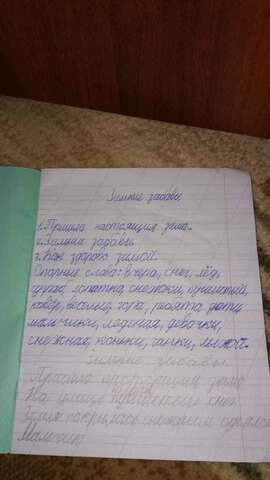 Зимние забавы
1. Пришла настоящая зима.
2. Зимние забавы.
3. Как здорово зимой.
Опорные слова: вчера, снег, лёд,
сугроб, лопатка, снежоки, пушистый,
ковёр, весёлые, гора, ребята, дети
мальчики, ледяная, девочки,
снежная, коньки, санки, лыжи.
Зимние забавы.
Пришла настоящая зима
На улице снег
Земля покрылась снежным
Мальчики